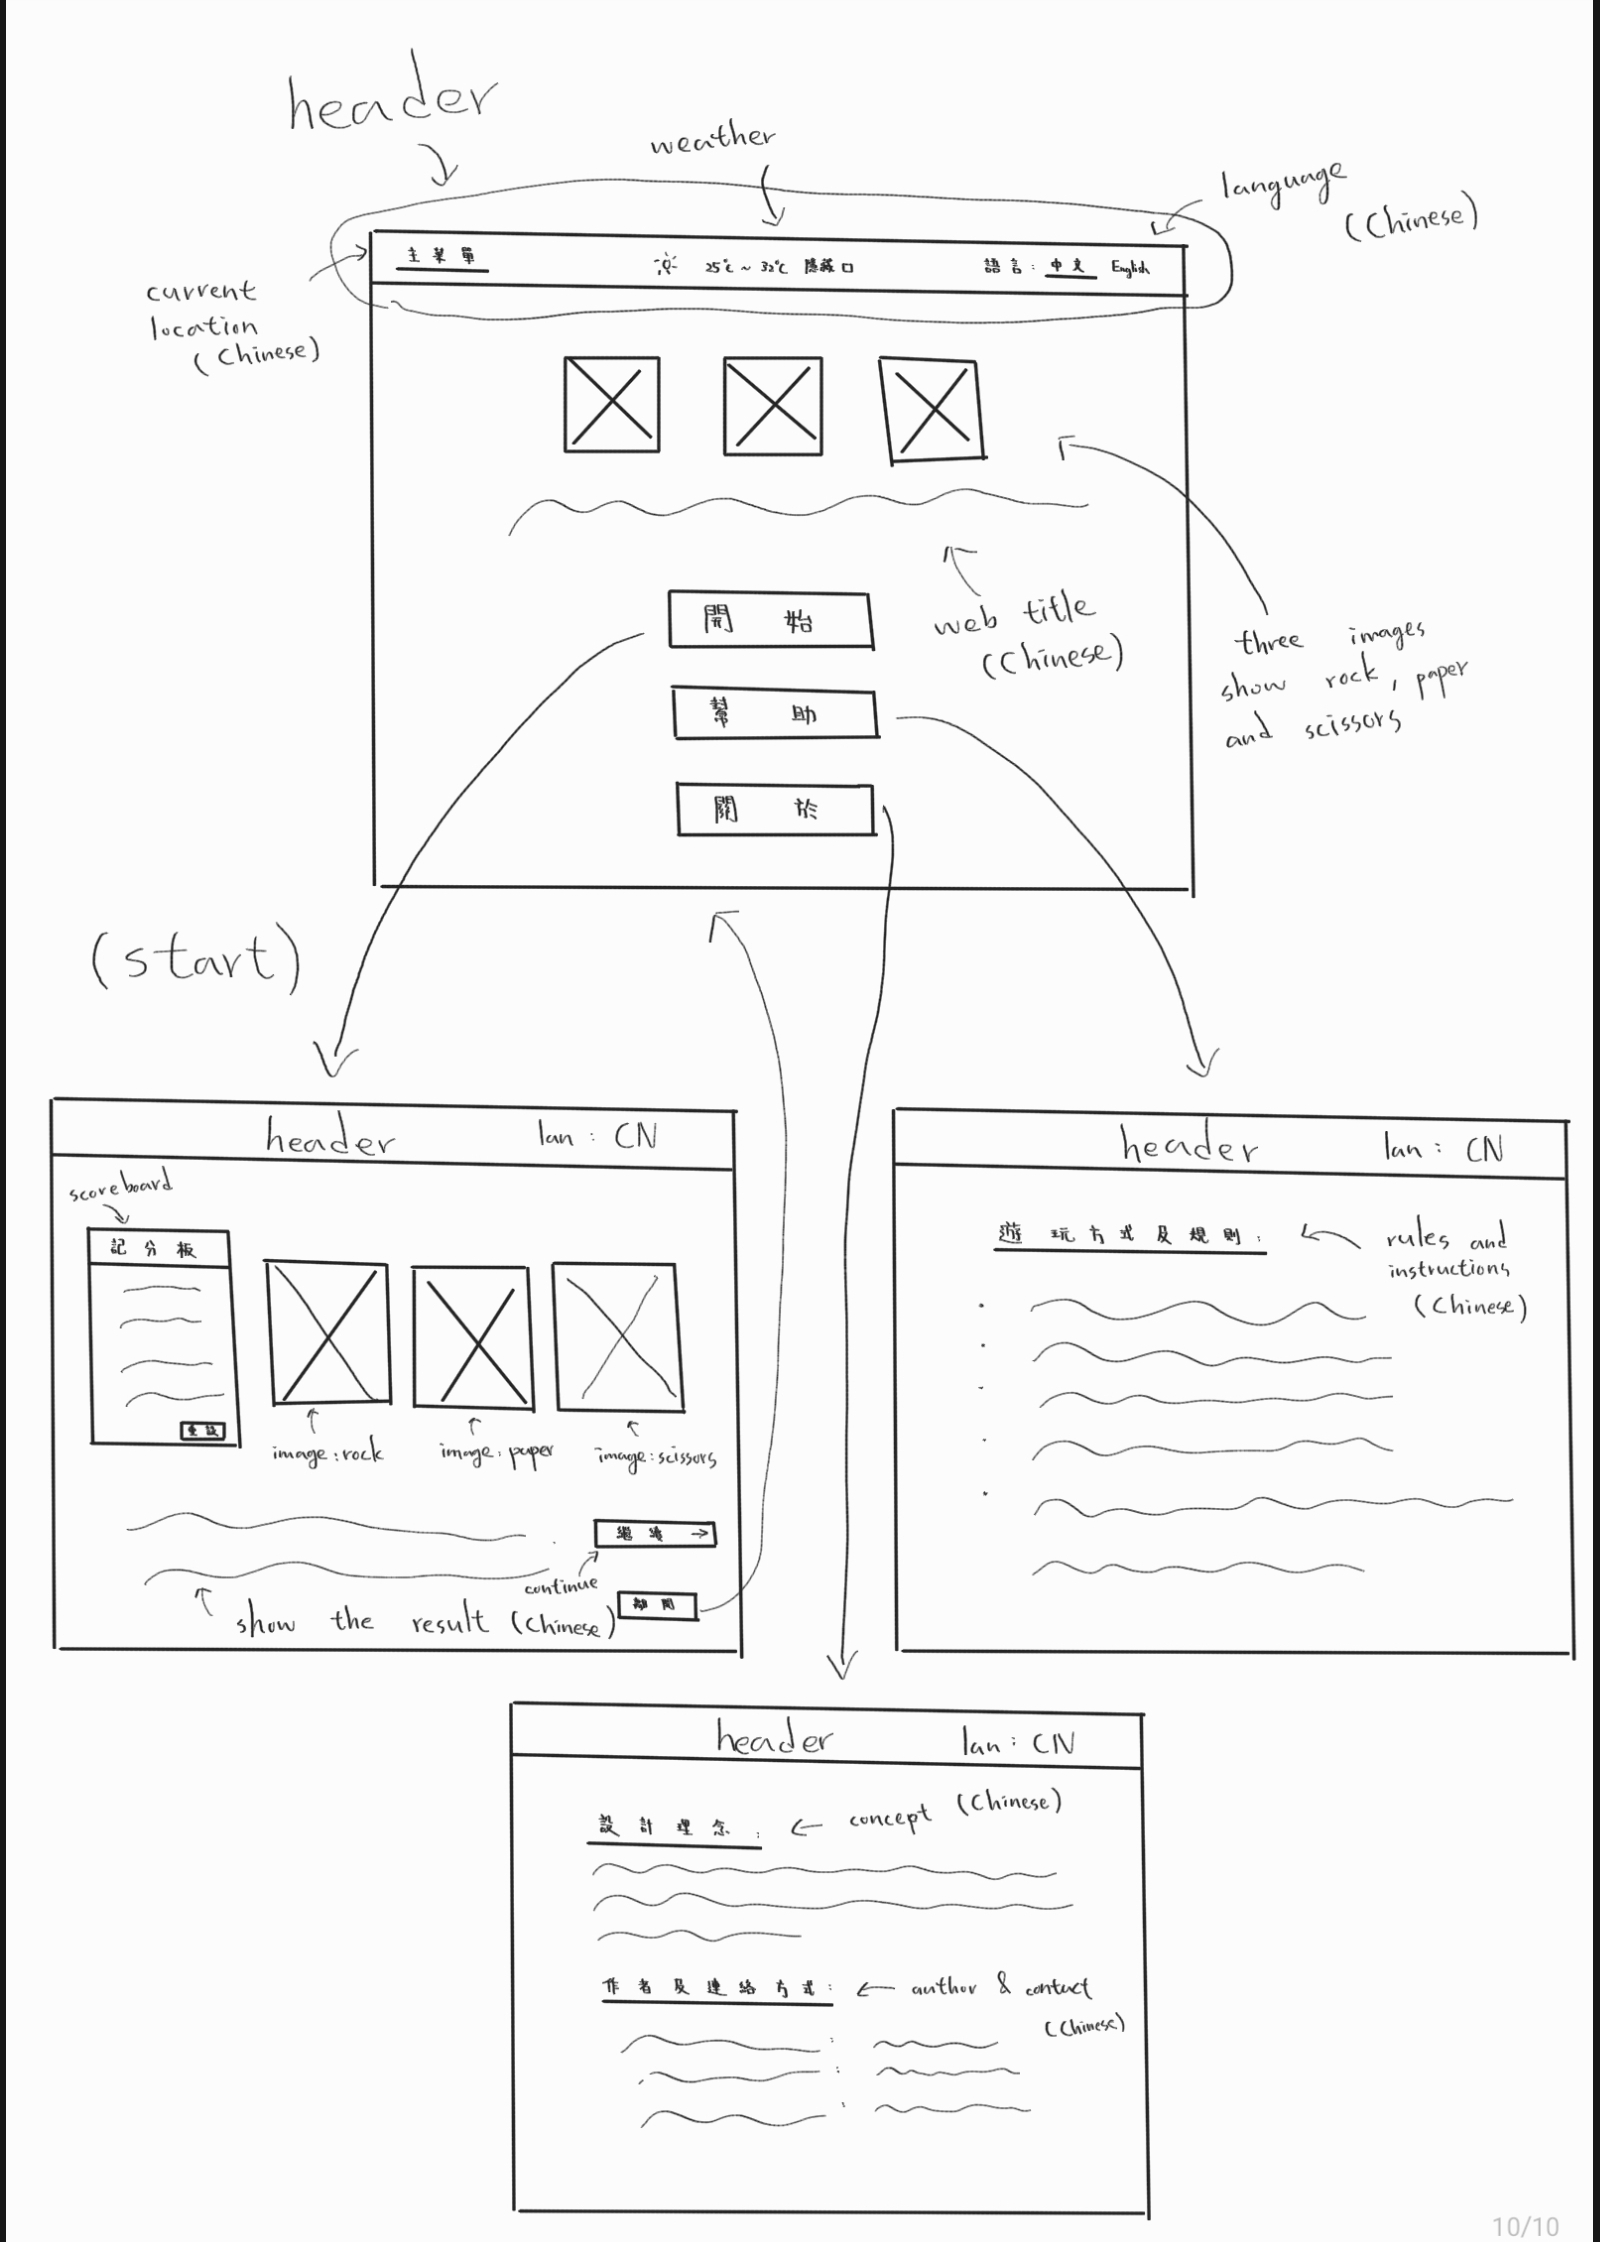 header
weather
language
(Chinese)
主菜單
25℃ ~ 32℃ 隱藏
語言: 中文 English
current
location
(Chinese)
開始
web title
(Chinese)
three images
show rock, paper
and scissors
幫助
關於
(start)
header lan: CN
scoreboard
記分板
重設
image: rock
image: paper
image: scissors
繼續 →
continue
離開
show the result (Chinese)
header lan: CN
遊玩方式及規則:
rules and
instructions
(Chinese)
header lan: CN
設計理念:
concept (Chinese)
作者及連絡方式:
author & contact
(Chinese)
10/10